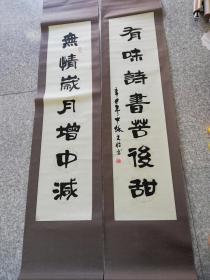 有味詩書苦後甜
無情歲月增中減